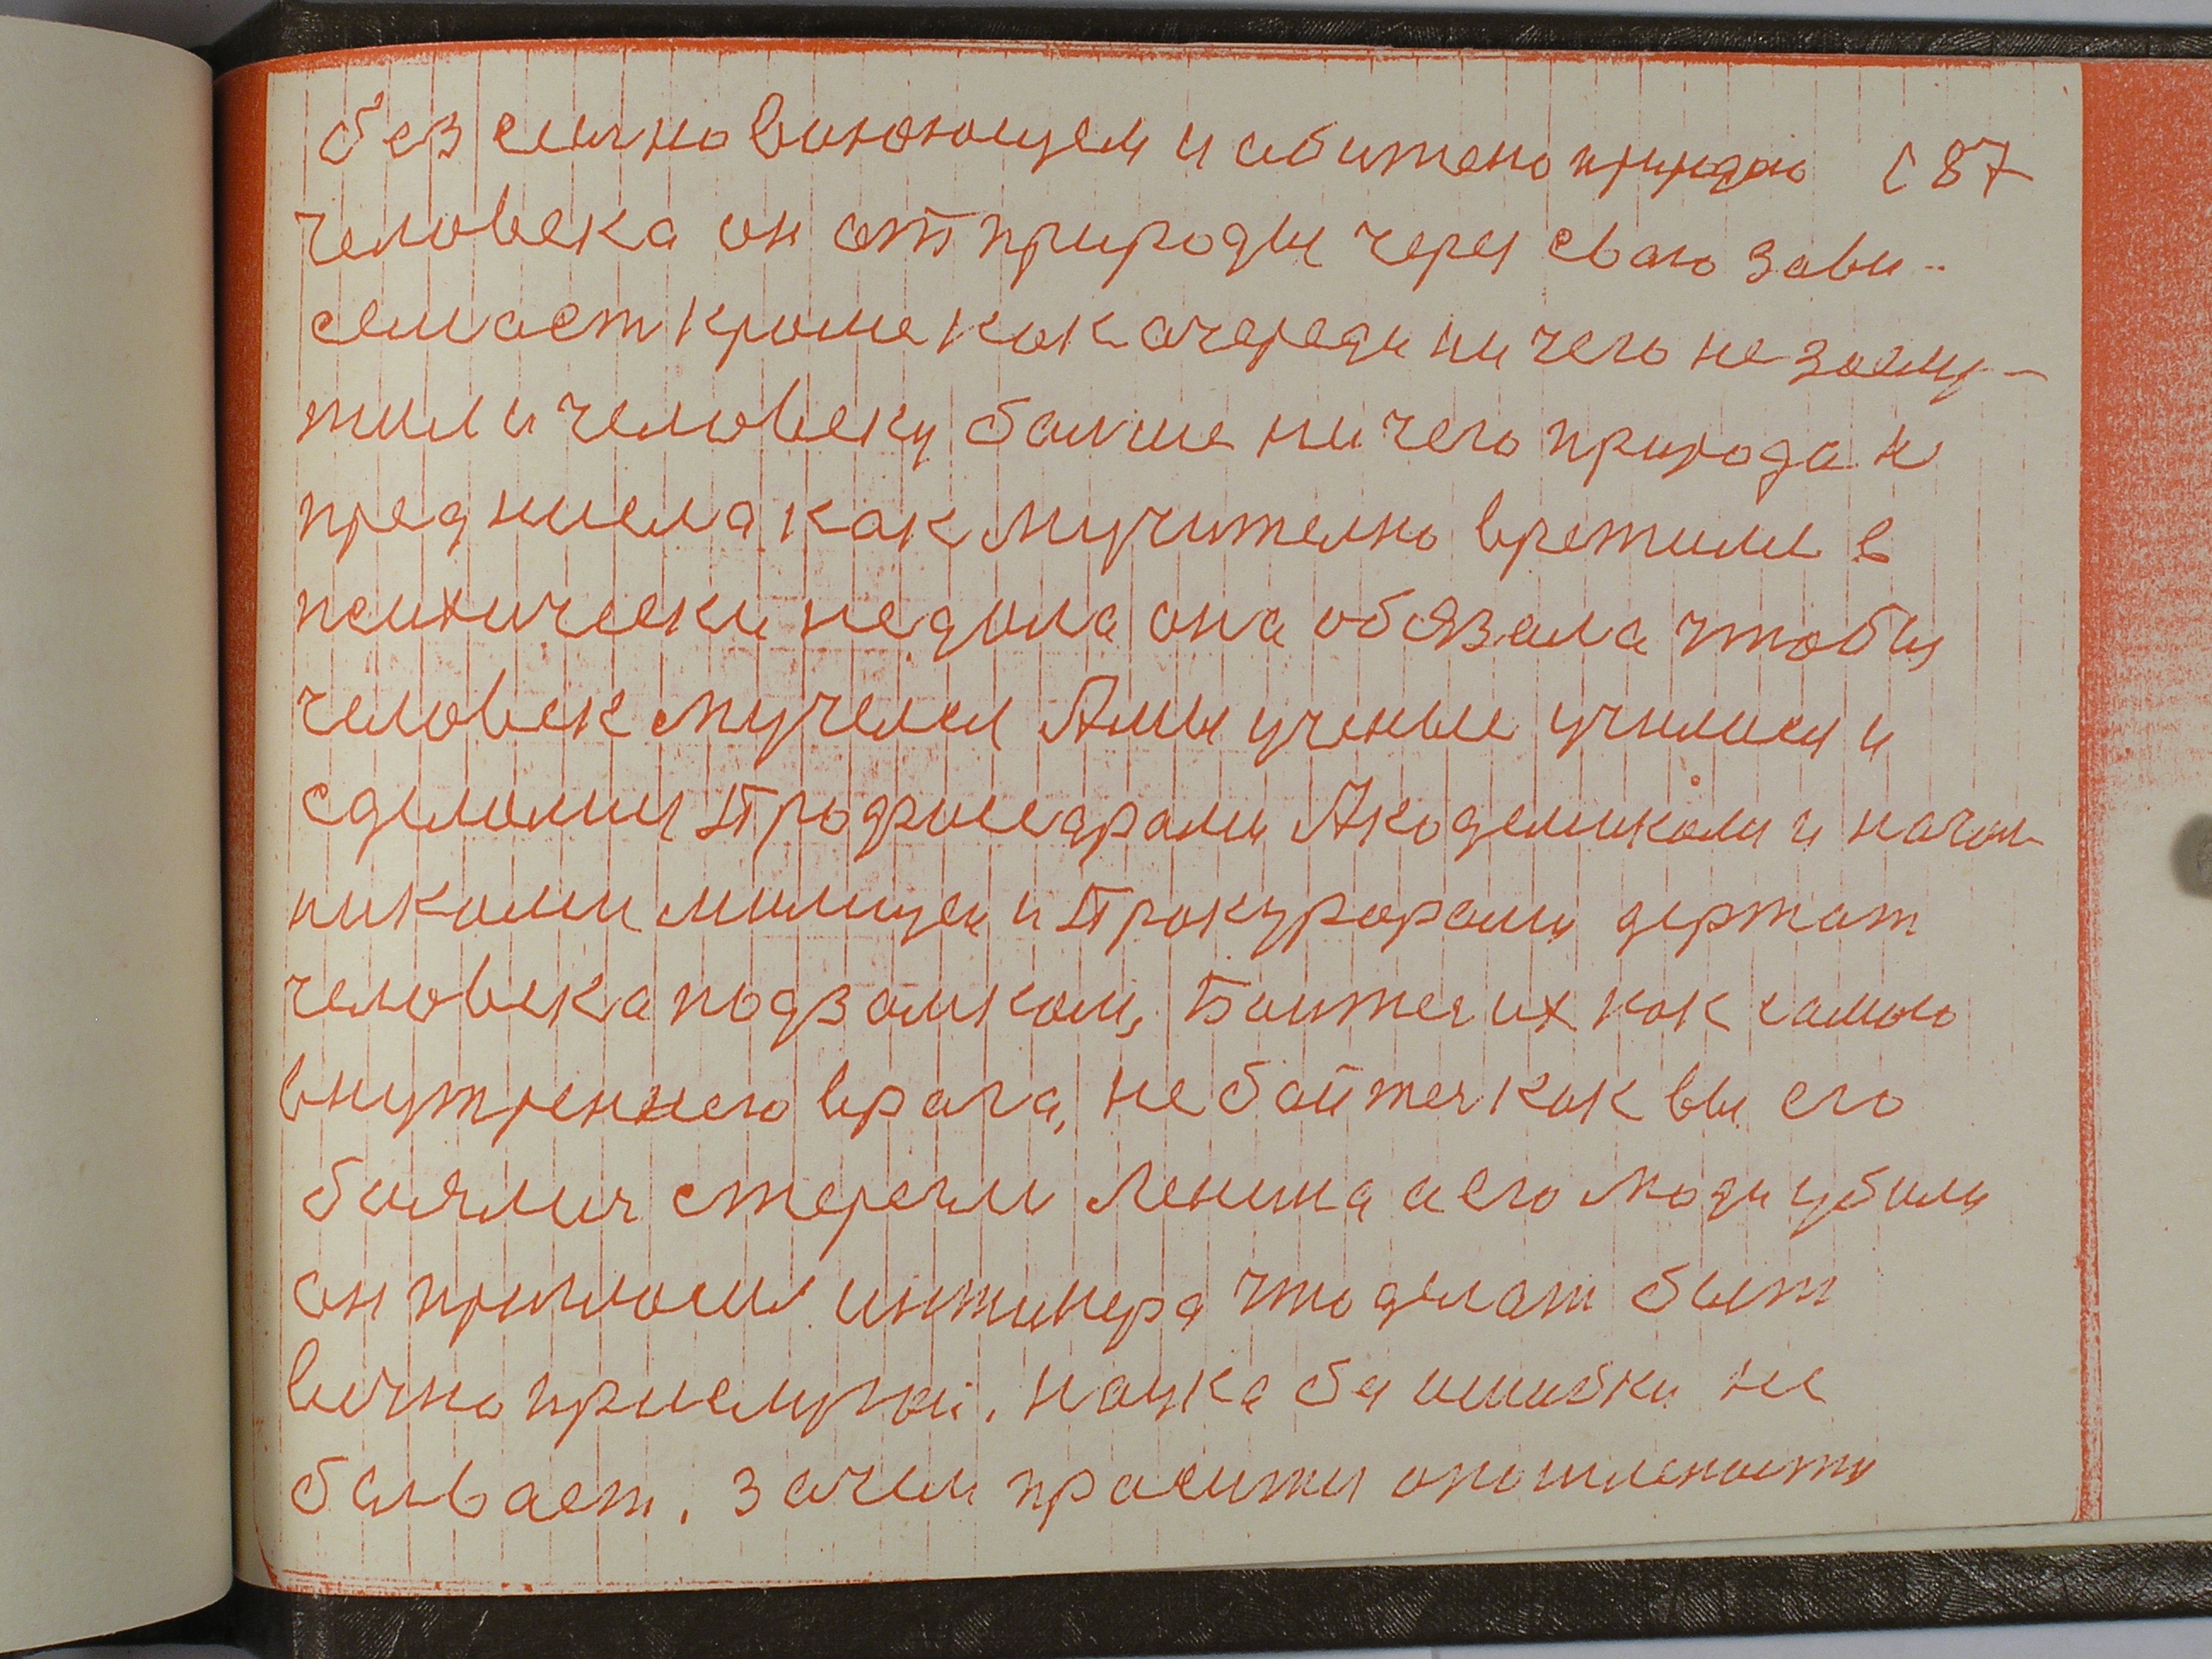 без силно винюющем и абижено природою с 87
человека он от природы через свою зави-
семаст кроме как очереди ни чего не заслу-
жил и человеку балше ни чего природа н
преднисла как мучително вретили в
психически недила она обязала чтобы
человек мучелся А мы ученые училися и
сделолися Профисарами Академиками и начал
никоми милиции и Прокурорами держат
человека подзамком, Боитеся их как самого
внутреннего врага, не бойтеся как вы его
боялися стерегли Ленина а его люди убили
он пригласил инжинера что делат быт
вечно прислугой. наука бы ошибки не
бывает. Зачем проситися